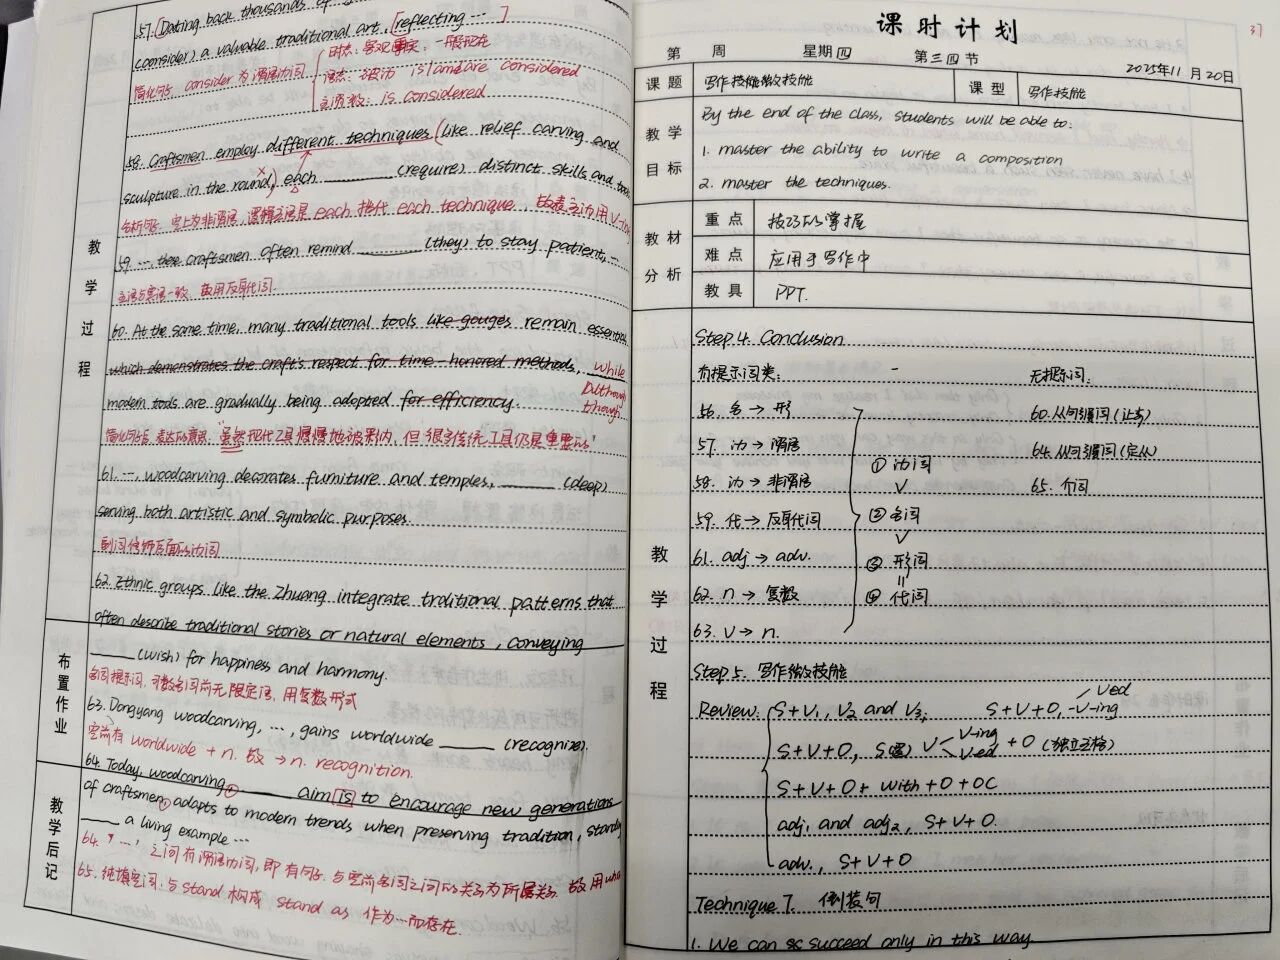 57. Dating back thousands of
(consider) a valuable traditional art, [reflecting … ]
简化句子 consider 为谓语动词
时态: 客观事实, 一般现在
语态: 被动 is/am/are considered
主谓数: is considered
58. Craftsmen employ different techniques (like relief carving and
sculpture in the round), each ______ (require) distinct skills and
分析句子, 空上为非谓语, 逻辑主语是 each 指代 each technique, 故表主动用 V-ing
59. …, craftsmen often remind ______ (they) to stay patient, …
主语与宾语一致, 故用反身代词.
60. At the same time, many traditional tools like gouges remain essential
which demonstrates the craft's respect for time-honored methods, while
although
though
modern tools are gradually being adopted for efficiency.
简化句子后, 表达的意思, "虽然现代工具慢慢地被采纳, 但很多传统工具仍是重要的"
61. …, woodcarving decorates furniture and temples, ______ (deep)
serving both artistic and symbolic purposes.
副词修饰后面的动词
62. Ethnic groups like the Zhuang integrate traditional patterns that
often describe traditional stories or natural elements, conveying
______ (wish) for happiness and harmony.
名词提示词, 可数名词前无限定语, 用复数形式
63. Dongyang woodcarving, …, gains worldwide ______ (recognize).
空前有 worldwide + n. 故 → n. recognition.
64. Today, woodcarving, ______ aim is to encourage new generations
of craftsmen, adapts to modern trends when preserving tradition,
______ a living example …
64. ", …," 之间有谓语动词, 即有句子. 与空前名词之间的关系为所属关系. 故用
65. 纯填空词, 与 stand 构成 stand as 作为…而存在.
教学过程
布置作业
教学后记
37
课时计划
第 周 星期四 第三四节 2025年11月20日
课题 写作技能微技能 课型 写作技能
教学目标
By the end of the class, students will be able to:
1. master the ability to write a composition
2. master the techniques.
教材分析
重点 技巧的掌握
难点 应用于写作中
教具 PPT.
教学过程
Step 4. Conclusion
有提示词类: - 无提示词:
56. 名 → 形 60. 从句引导词 (让步)
57. 动 → 谓语 64. 从句引导词 (定从)
① 动词
58. 动 → 非谓语 65. 介词
∨
59. 代 → 反身代词 ② 名词
∨
61. adj → adv. ③ 形词
॥
62. n → 复数 ④ 代词
63. V → n.
Step 5. 写作微技能
Review: S+V1, V2 and V3; S+V+O, -V-ing
Ved
S+V+O, S(逻) V V-ing Ved + O (独立主格)
S+V+O+ with+O+OC
adj1 and adj2, S+V+O.
adv., S+V+O
Technique 7. 倒装句
1. We can succeed only in this way.